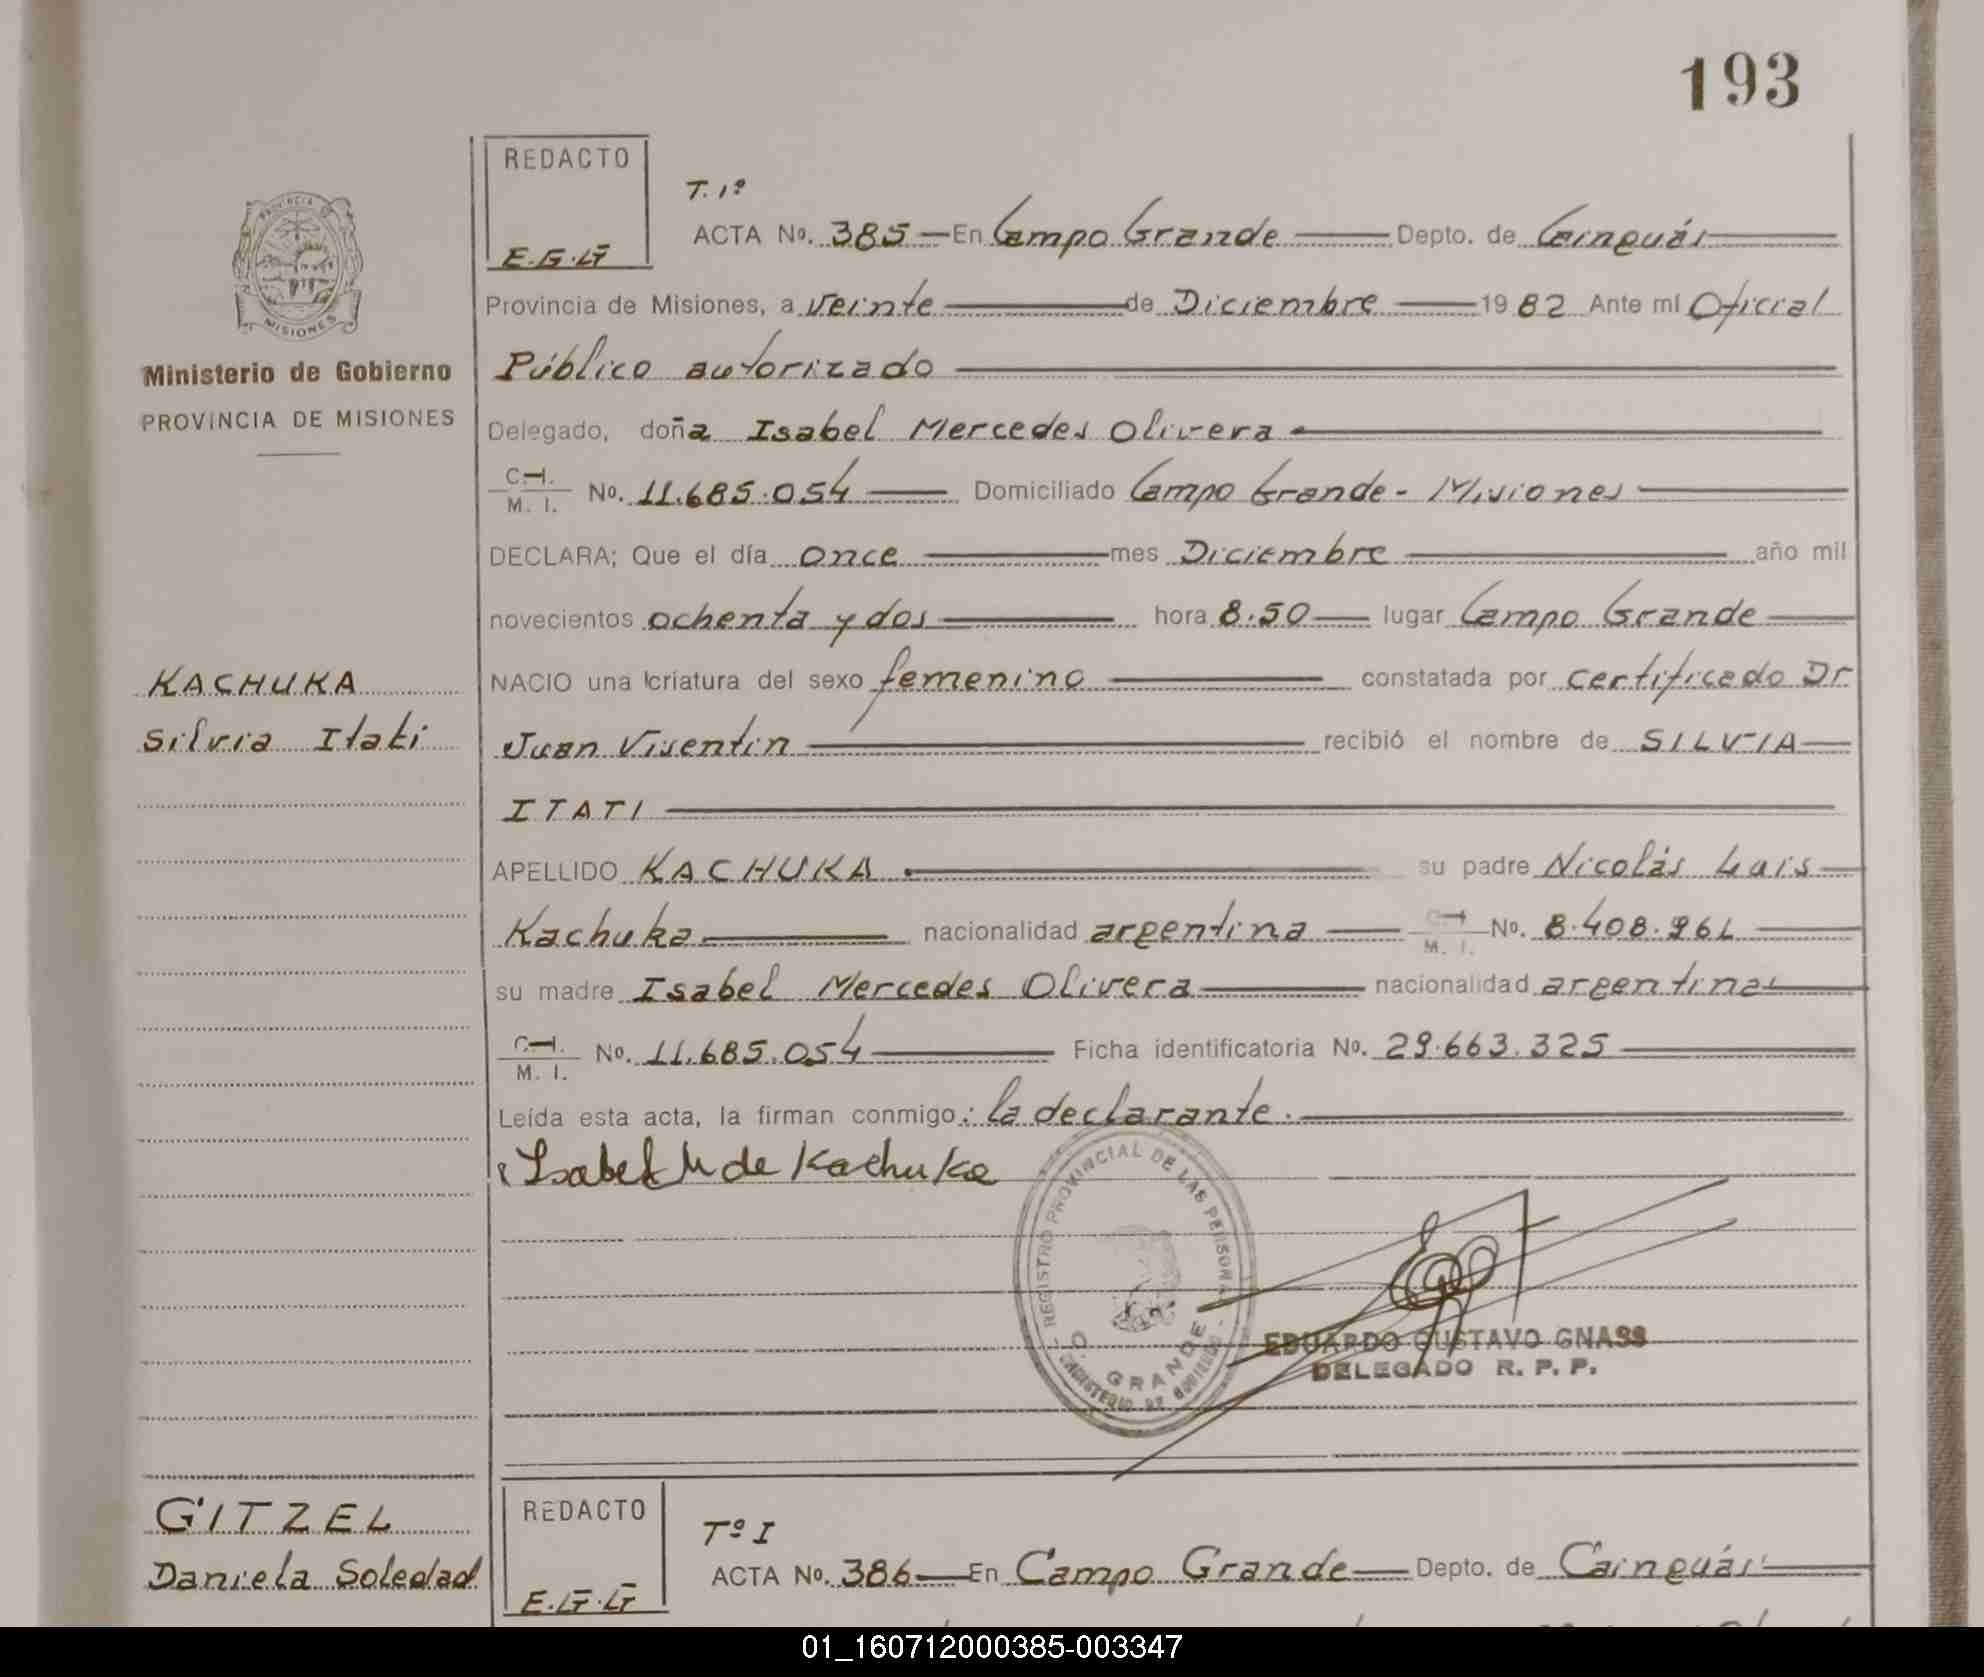 193
REDACTO
E.G.G
T. 1º
ACTA No. 385 En Campo Grande Depto. de Cainguás
Provincia de Misiones, a veinte de Diciembre 1982 Ante mí Oficial
Público autorizado
Delegado, doña Isabel Mercedes Olivera
C.I. M. I. No. 11.685.054 Domiciliado Campo Grande - Misiones
DECLARA; Que el día once mes Diciembre año mil
novecientos ochenta y dos hora 8.50 lugar Campo Grande
NACIO una criatura del sexo femenino constatada por certificado Dr
Juan Visentin recibió el nombre de SILVIA
ITATI
APELLIDO KACHUKA su padre Nicolás Luis
Kachuka nacionalidad argentina C.I. M. I. No. 8.408.961
su madre Isabel Mercedes Olivera nacionalidad argentina
C.I. M. I. No. 11.685.054 Ficha identificatoria No. 29.663.325
Leída esta acta, la firman conmigo: la declarante.
Isabel M de Kachuka
PROVINCIA DE MISIONES
Ministerio de Gobierno
PROVINCIA DE MISIONES
KACHUKA
Silvia Itati
REGISTRO PROVINCIAL DE LAS PERSONAS
C. GRANDE
MINISTERIO DE GOBIERNO
EDUARDO GUSTAVO GNASS
DELEGADO R. P. P.
GITZEL
Daniela Soledad
REDACTO
E.G.G
Tº I
ACTA No. 386 En Campo Grande Depto. de Cainguás
01_160712000385-003347